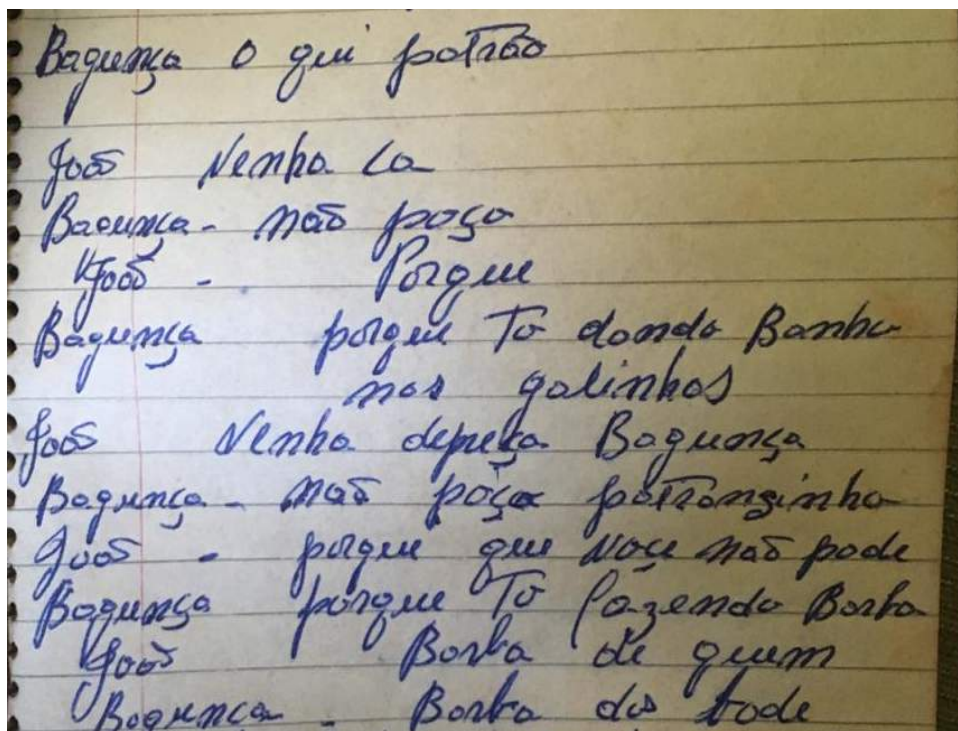 Bagunça o qui patrão
João Venha ca
Bagunça - não poço
João - Porque
Bagunça porque To dando Banho
nas galinhas
João Venha depreça Bagunça
Bagunça - não poço patranzinho
João - porque que voce não pode
Bagunça porque To fazendo Barba
João Barba de quem
Bagunça - Barba do bode